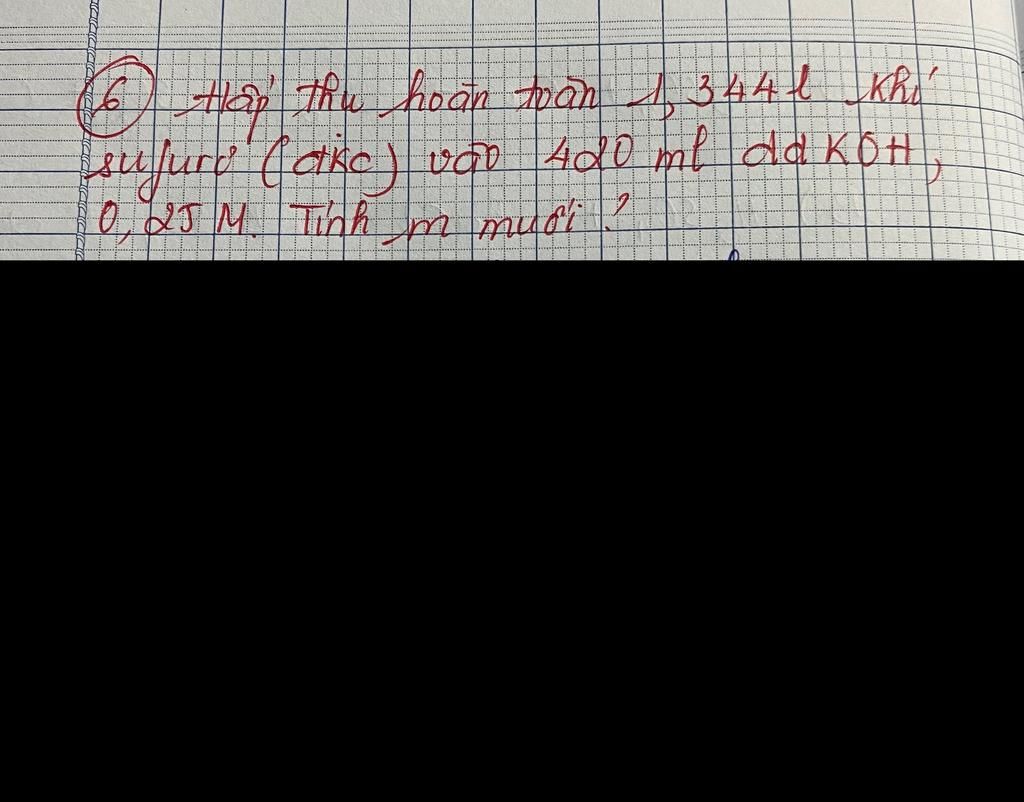 6 Hấp thu hoàn toàn 1,344l khí
sufurơ (đkc) vào 420 ml dd KOH,
0,25 M. Tính m muối ?